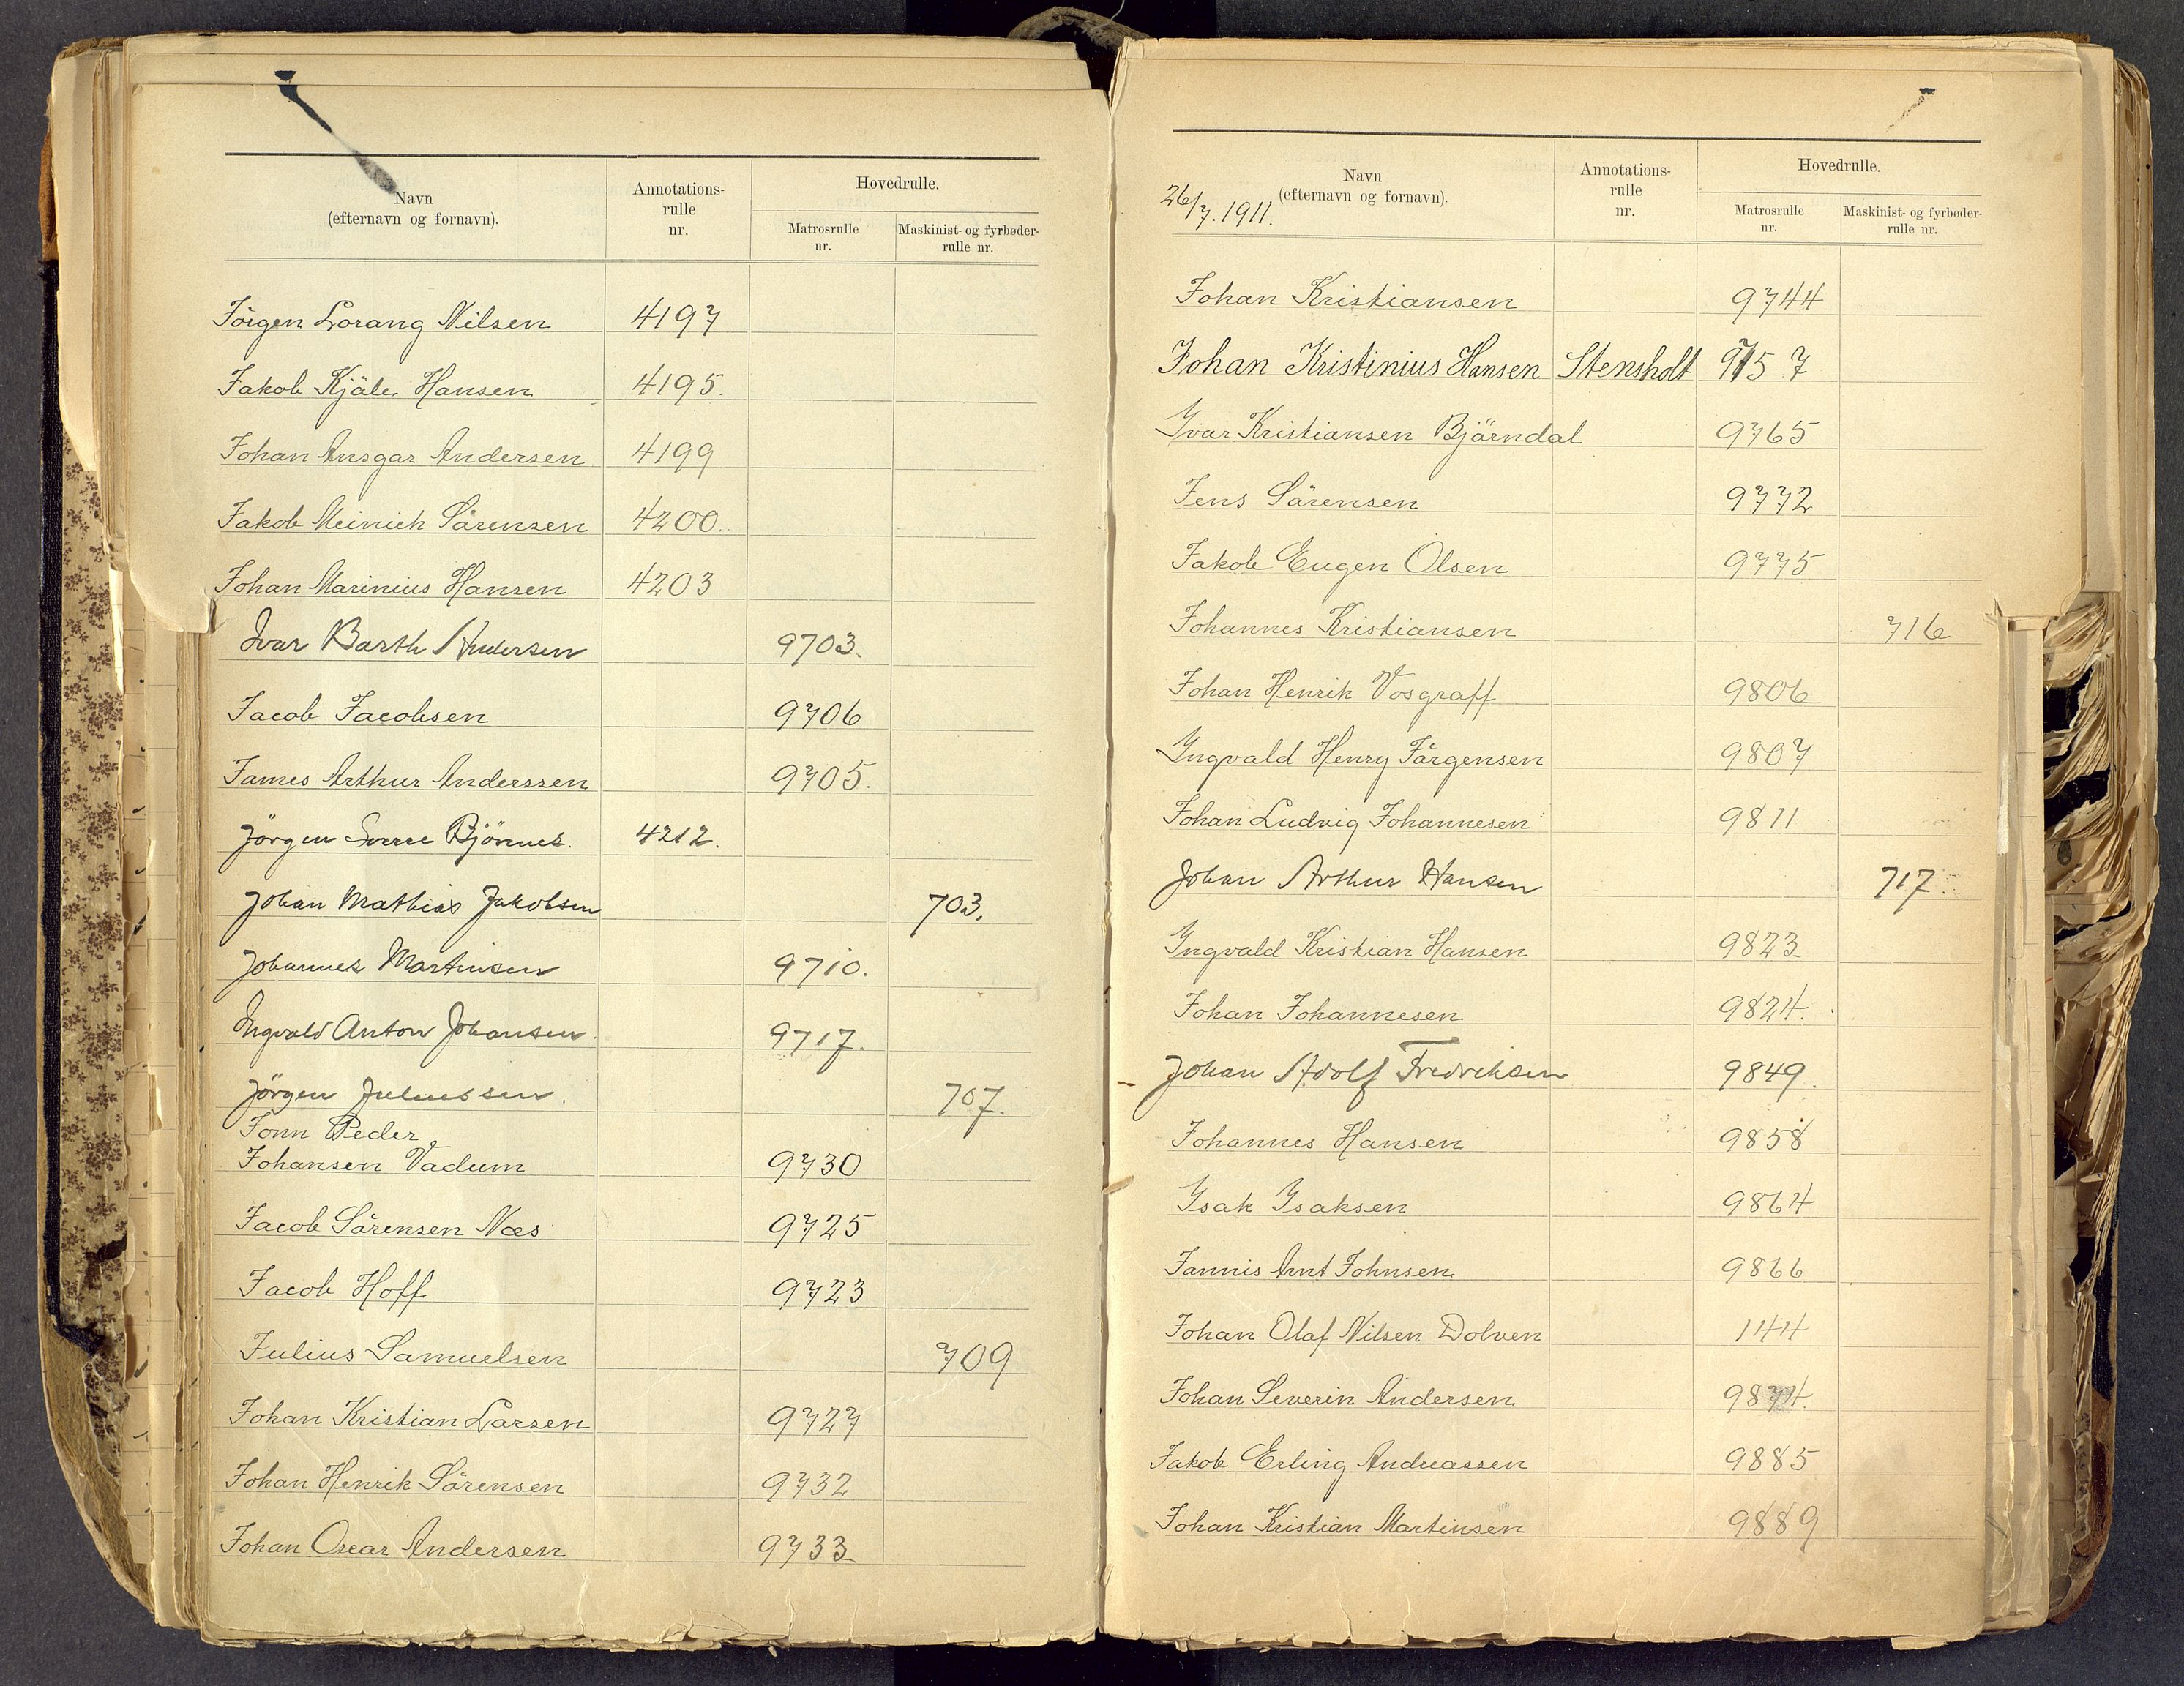 Navn
(efternavn og fornavn).
Annotations-
rulle
nr.
Hovedrulle.
Matrosrulle
nr.
Maskinist- og fyrbøder-
rulle nr.
Jörgen Lorang Nilsen 4197
Jakob Kjäle Hansen 4195.
Johan Ansgar Andersen 4199
Jakob Meinich Sörensen 4200.
Johan Marinius Hansen 4203
Ivar Barth Andersen 9703.
Jacob Jacobsen 9706
James Arthur Anderssen 9705.
Jörgen Sverre Björnes. 4212.
Johan Mathias Jakobsen 703.
Johannes Martinsen 9710.
Ingvald Anton Johansen. 9717.
Jörgen Juliussen. 707.
Jonn Peder
Johansen Vadum 9730
Jacob Sörensen Næs 9725
Jacob Hoff 9723
Julius Samuelsen 709
Johan Kristian Larsen 9727
Johan Henrik Sörensen 9732
Johan Oscar Andersen 9733
26/7. 1911.
Navn
(efternavn og fornavn).
Annotations-
rulle
nr.
Hovedrulle.
Matrosrulle
nr.
Maskinist- og fyrbøder-
rulle nr.
Johan Kristiansen 9744
Johan Kristinius Hansen Stensholt 9757
Yvar Kristiansen Björndal 9765
Jens Sörensen 9772
Jakob Eugen Olsen 9775
Johannes Kristiansen 716
Johan Henrik Vosgraff 9806
Yngvald Henry Jörgensen 9807
Johan Ludvig Johannesen 9811
Johan Arthur Hansen 717.
Yngvald Kristian Hansen 9823
Johan Johannesen 9824.
Johan Adolf Fredriksen 9849.
Johannes Hansen 9858
Ysak Ysaksen 9864
Jannis Arnt Johnsen 9866
Johan Olaf Nilsen Dolven 144
Johan Severin Andersen 9874.
Jakob Erling Andreassen 9885
Johan Kristian Martinsen 9889